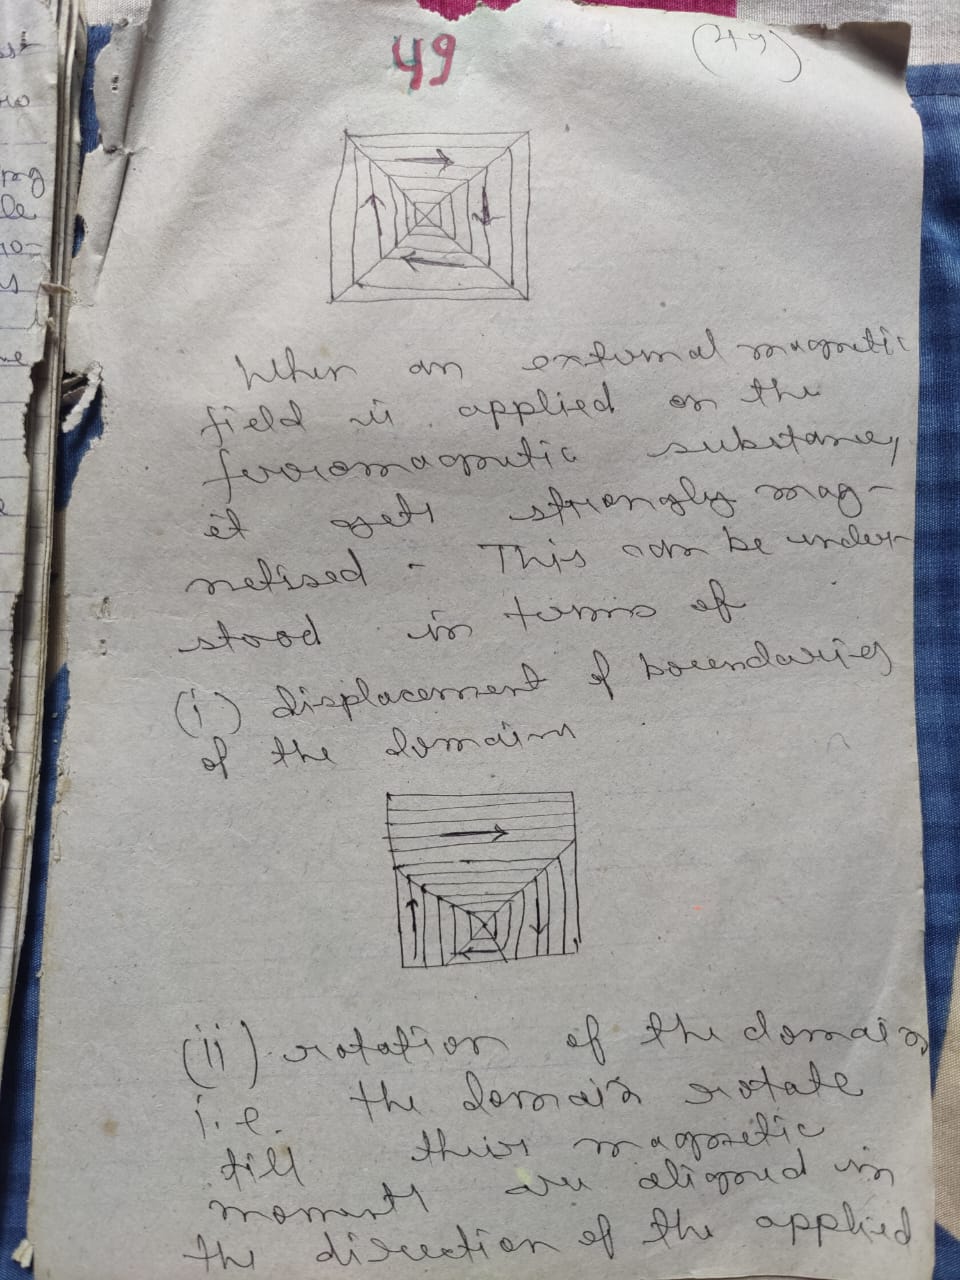 49
(49)
When an external magnetic
field is applied on the
ferromagnetic substance,
it gets strongly mag-
netised. This can be under-
stood in terms of
(i) displacement of boundaries
of the domains
(ii) rotation of the domains
i.e. the domains rotate
till their magnetic
moments are aligned in
the direction of the applied